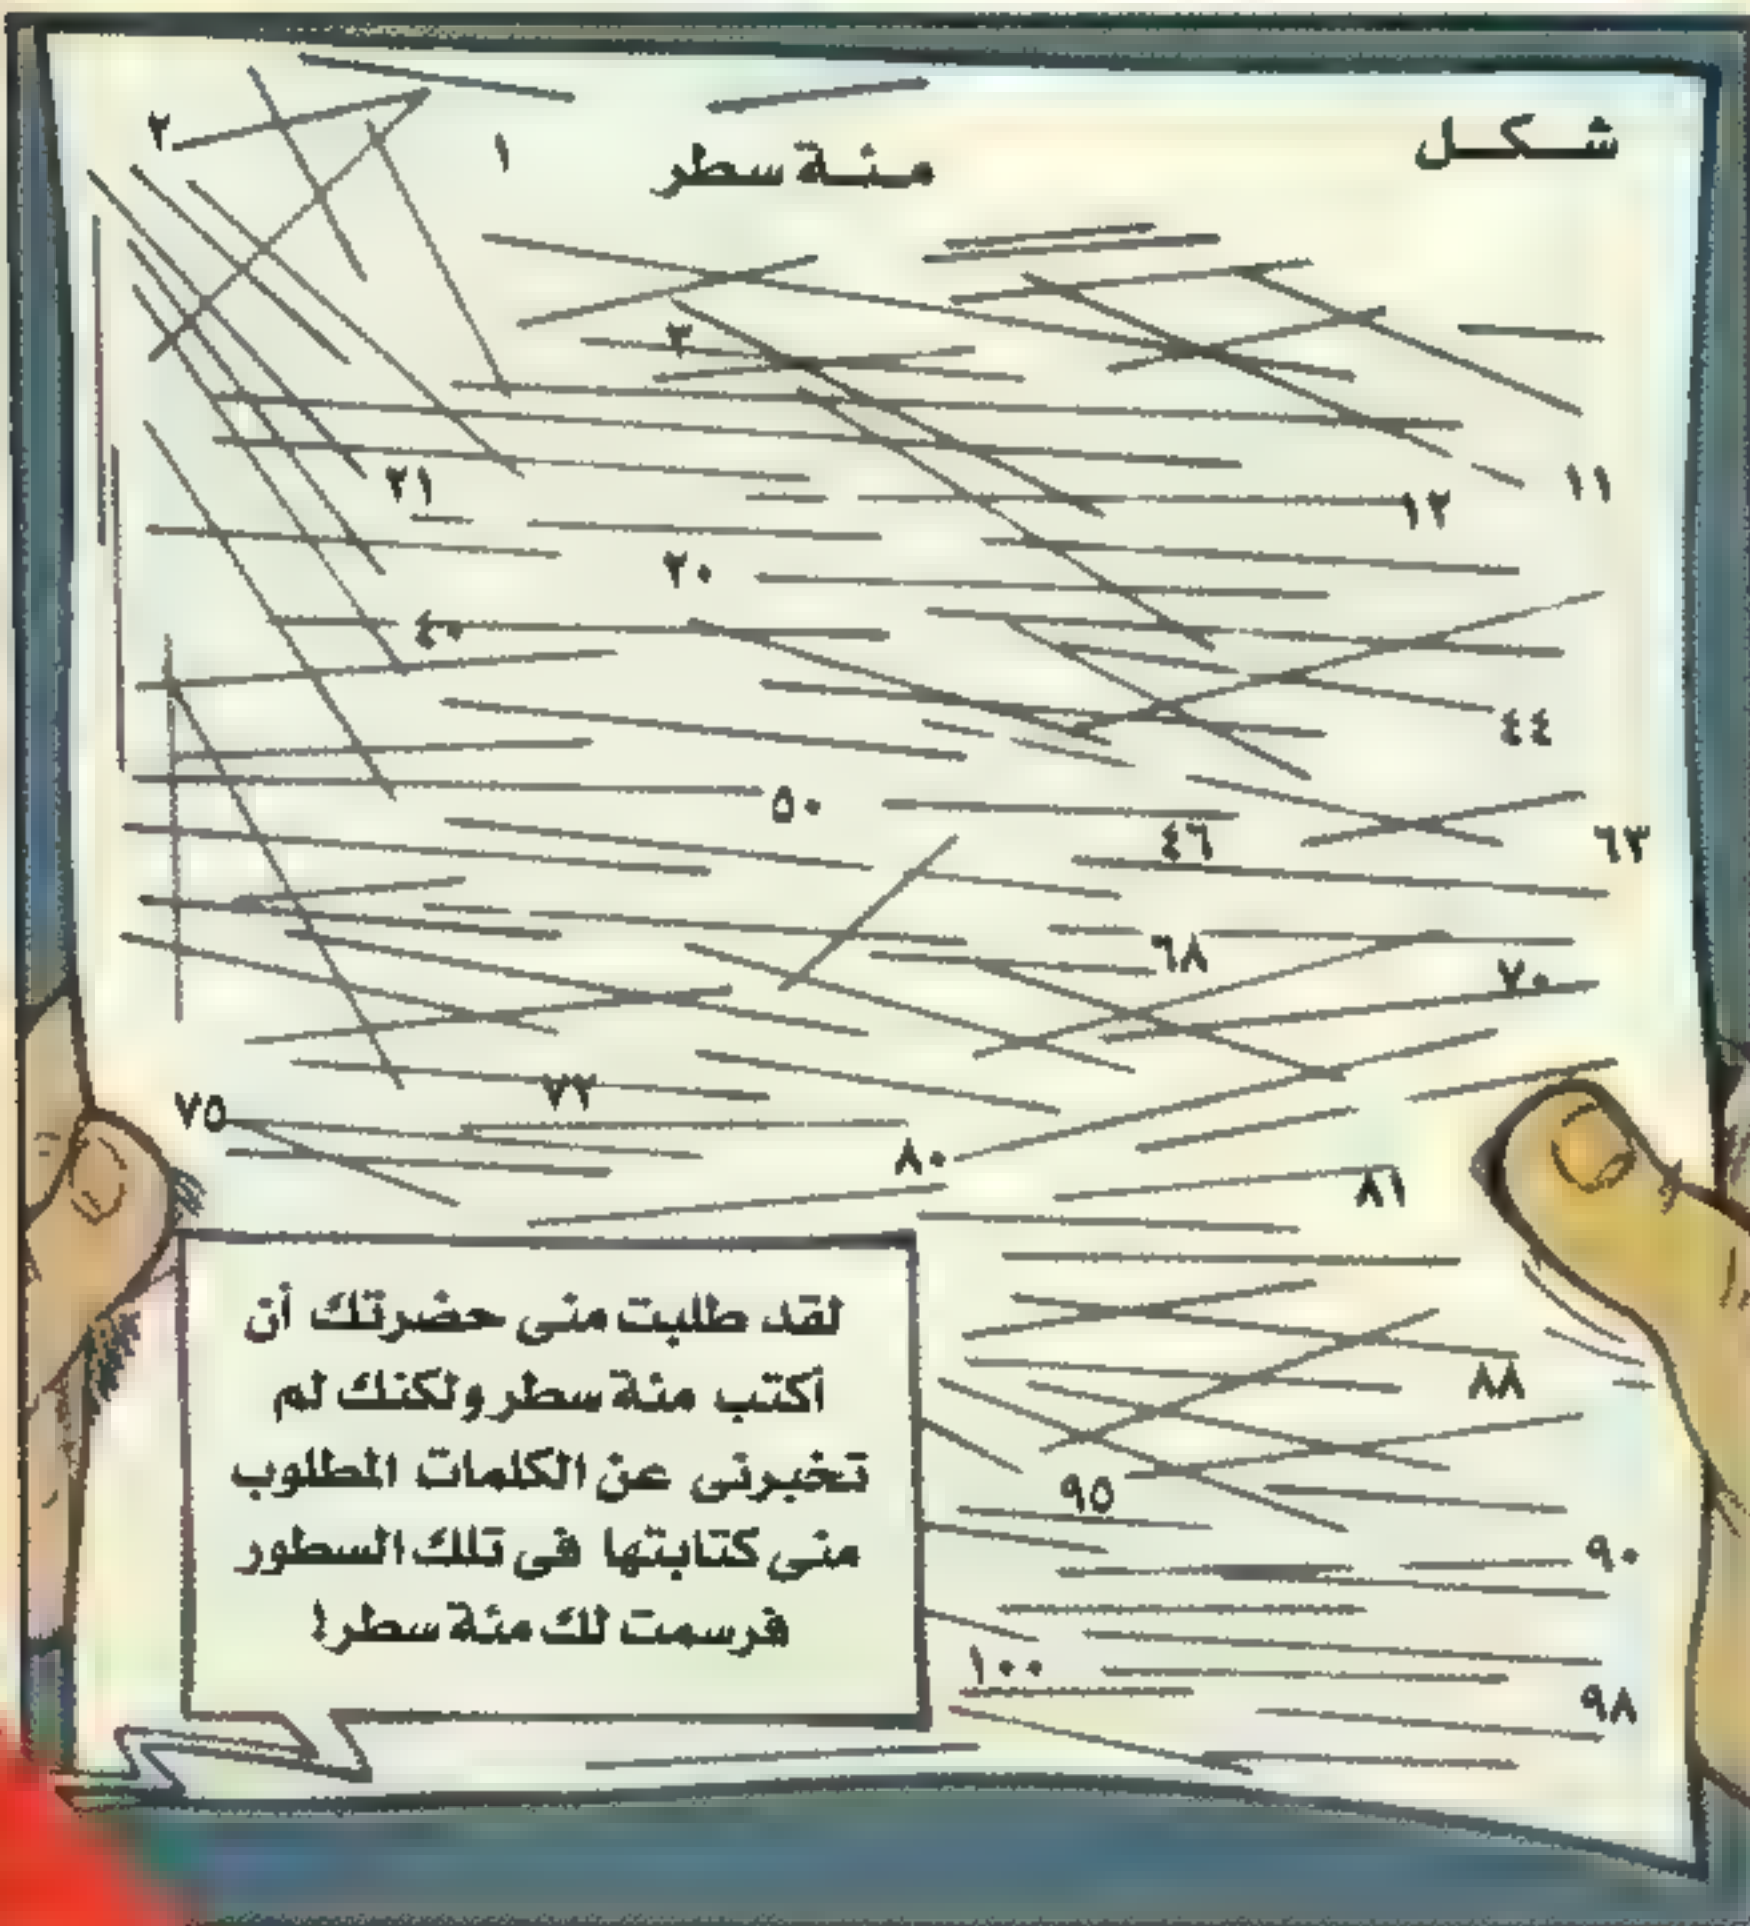 شكل
مئة سطر
١
٢
٣
١١
٢١
١٢
٢٠
٤٠
٤٤
٥٠
٤٦
٦٣
٦٨
٧٠
٧٢
٧٥
٨٠
٨١
لقد طلبت منى حضرتك أن
أكتب مئة سطر ولكنك لم
تخبرنى عن الكلمات المطلوب
منى كتابتها فى تلك السطور
فرسمت لك مئة سطر!
٨٨
٩٥
٩٠
١٠٠
٩٨